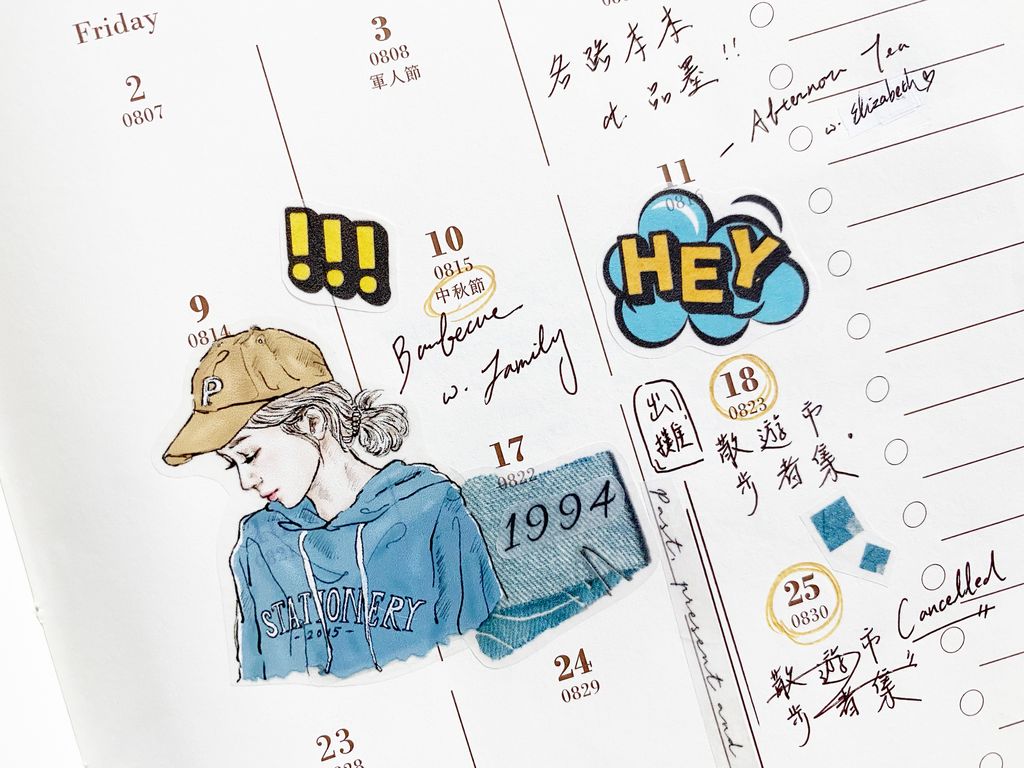 Friday
2
0807
3
0808
軍人節
各路本本
at. 品墨!!
- Afternoon Tea
w. Elizabeth♡
!!!
9
0814
10
0815
中秋節
Barbecue
w. Family
11
HEY
P
STATIONERY
- 2015 -
17
0822
1994
出攤
18
0823
散步
遊者
市集.
past, present and
23
24
0829
25
0830
Cancelled
散步
遊者
市集